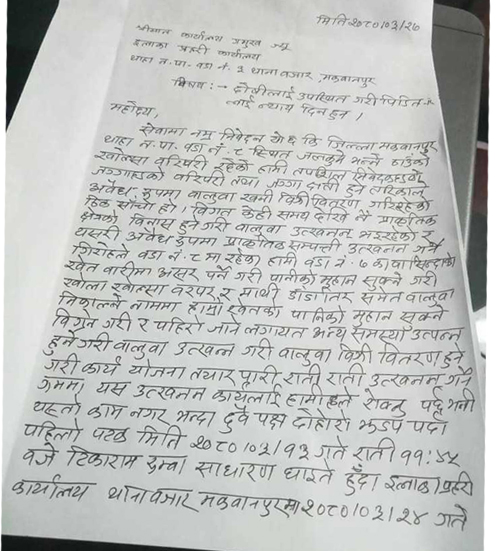 मिति २०८०/०३/२७
श्रीमान कार्यालय प्रमुख ज्यू
इलाका प्रहरी कार्यालय
थाहा न.पा. वडा नं. ३ थाना बजार, मकवानपुर
विषय :- दोषीलाई उपस्थित गरी पिडित
लाई न्याय दिनु हुन ।
महोदय,
सेवामा नम्र निवेदन यो छ कि जिल्ला मकवानपुर
थाहा न.पा. वडा नं. ८ स्थित जलकुने भन्ने ठाउँको
खोल्सा वरिपरी रहेको हामी तपशिल निवेदकहरुको
जग्गाहरुको वरिपरी तथा जग्गा दाबी हुन तत्काल
अवैध रुपमा बालुवा खनी विक्री वितरण गरिरहेको
ठिक साँचो हो । विगत केही समय देखि नै प्राकृतिक
क्षेत्रको विनास हुने गरी बालुवा उत्खनन भइरहेको र
यसरी अवैध रुपमा प्राकृतिक सम्पत्ती उत्खनन गर्ने
गिरोहले वडा नं. ८ मा रहेका हामी वडा नं. ७ का बासिन्दाको
खेत बारीमा असर पर्ने गरी पानीको मुहान सुक्ने गरी
खोला खोल्सा वरपर र माथी डाँडा तिर समेत बालुवा
निकाल्ने नाममा हाम्रो खेतका पानीको मुहान सुक्ने
बिग्रने गरी र पहिरो जाने लगायत अन्य समस्या उत्पन्न
हुने गरी बालुवा उत्खनन गरी बालुवा विक्री वितरण हुने
गरी कार्य योजना तयार पारी राती राती उत्खनन गर्ने
क्रममा यस उत्खनन कार्यलाई हामीहरुले रोक्नु पर्छ भनी
यस्तो काम नगर भन्दा दुवै पक्ष दोहोरो झडप पर्दा
पहिलो पटक मिति २०८०/०३/१३ गते राती ११:४५
बजे टिकाराम रुम्बा साधारण घाइते हुँदा इलाका प्रहरी
कार्यालय थानाबजार मकवानपुरमा २०८०/०३/२४ गते